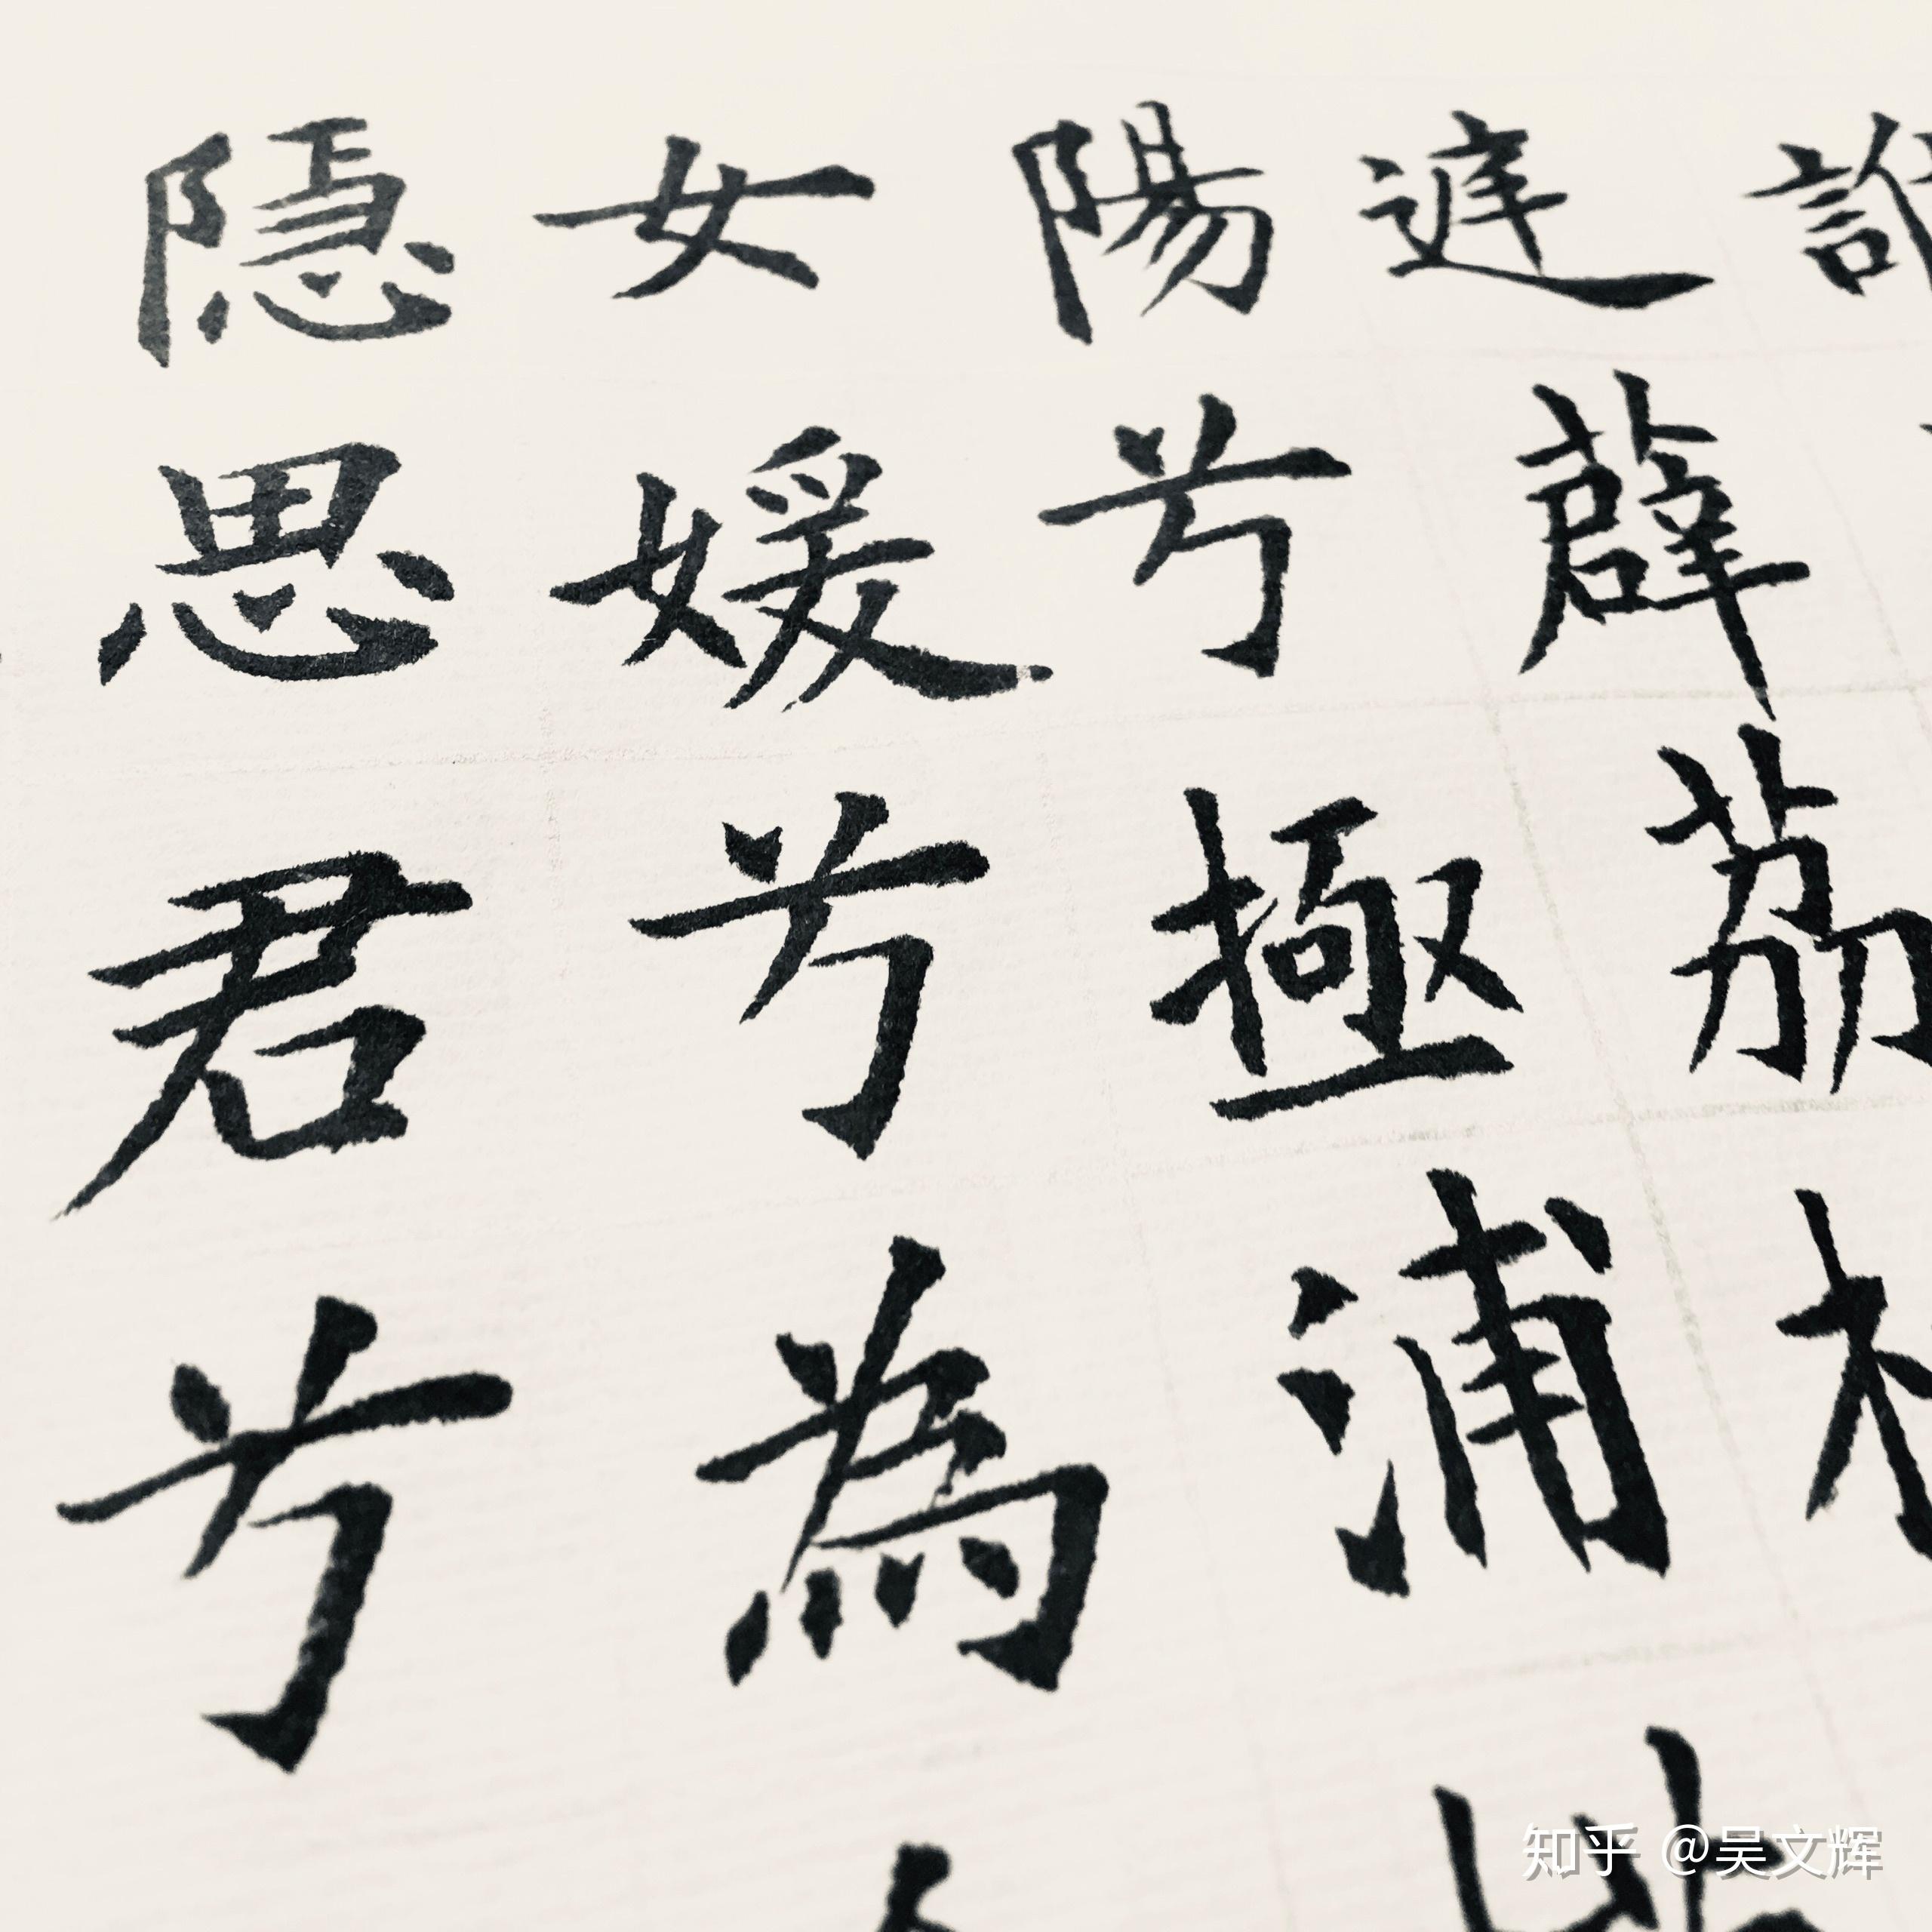 庭薜荔
陽兮極浦
女媛兮為
隱思君兮
知乎 @吴文辉